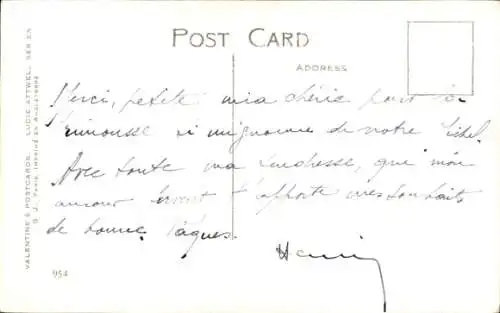 POST CARD
ADDRESS
VALENTINE'S POSTCARDS. LUCIE ATTWELL SERIES
Merci, petite mia chérie pour la
frimousse si mignonne de notre
Avec toute ma tendresse, que mon
amour fervent t'apporte mes souhaits
de bonnes Pâques.
Henri
954